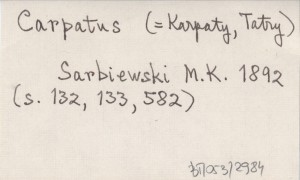 Carpatus (= Karpaty, Tatry)
Sarbiewski M.K. 1892
(s. 132, 133, 582)